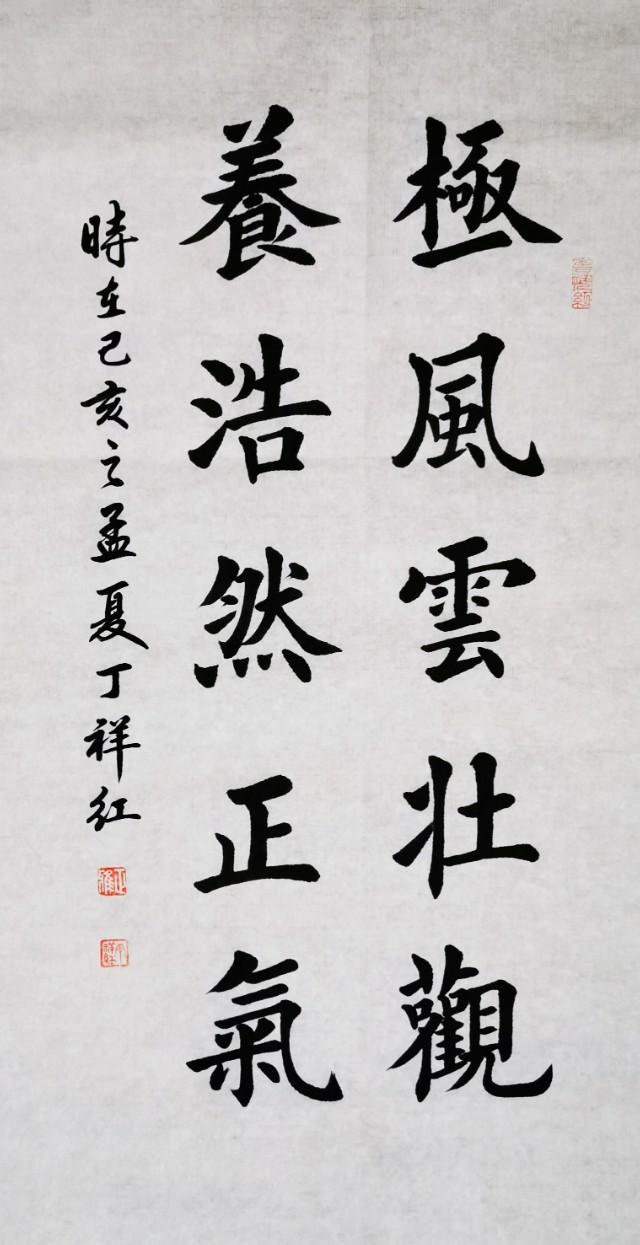 極風雲壯觀
養浩然正氣
時在己亥之孟夏丁祥红